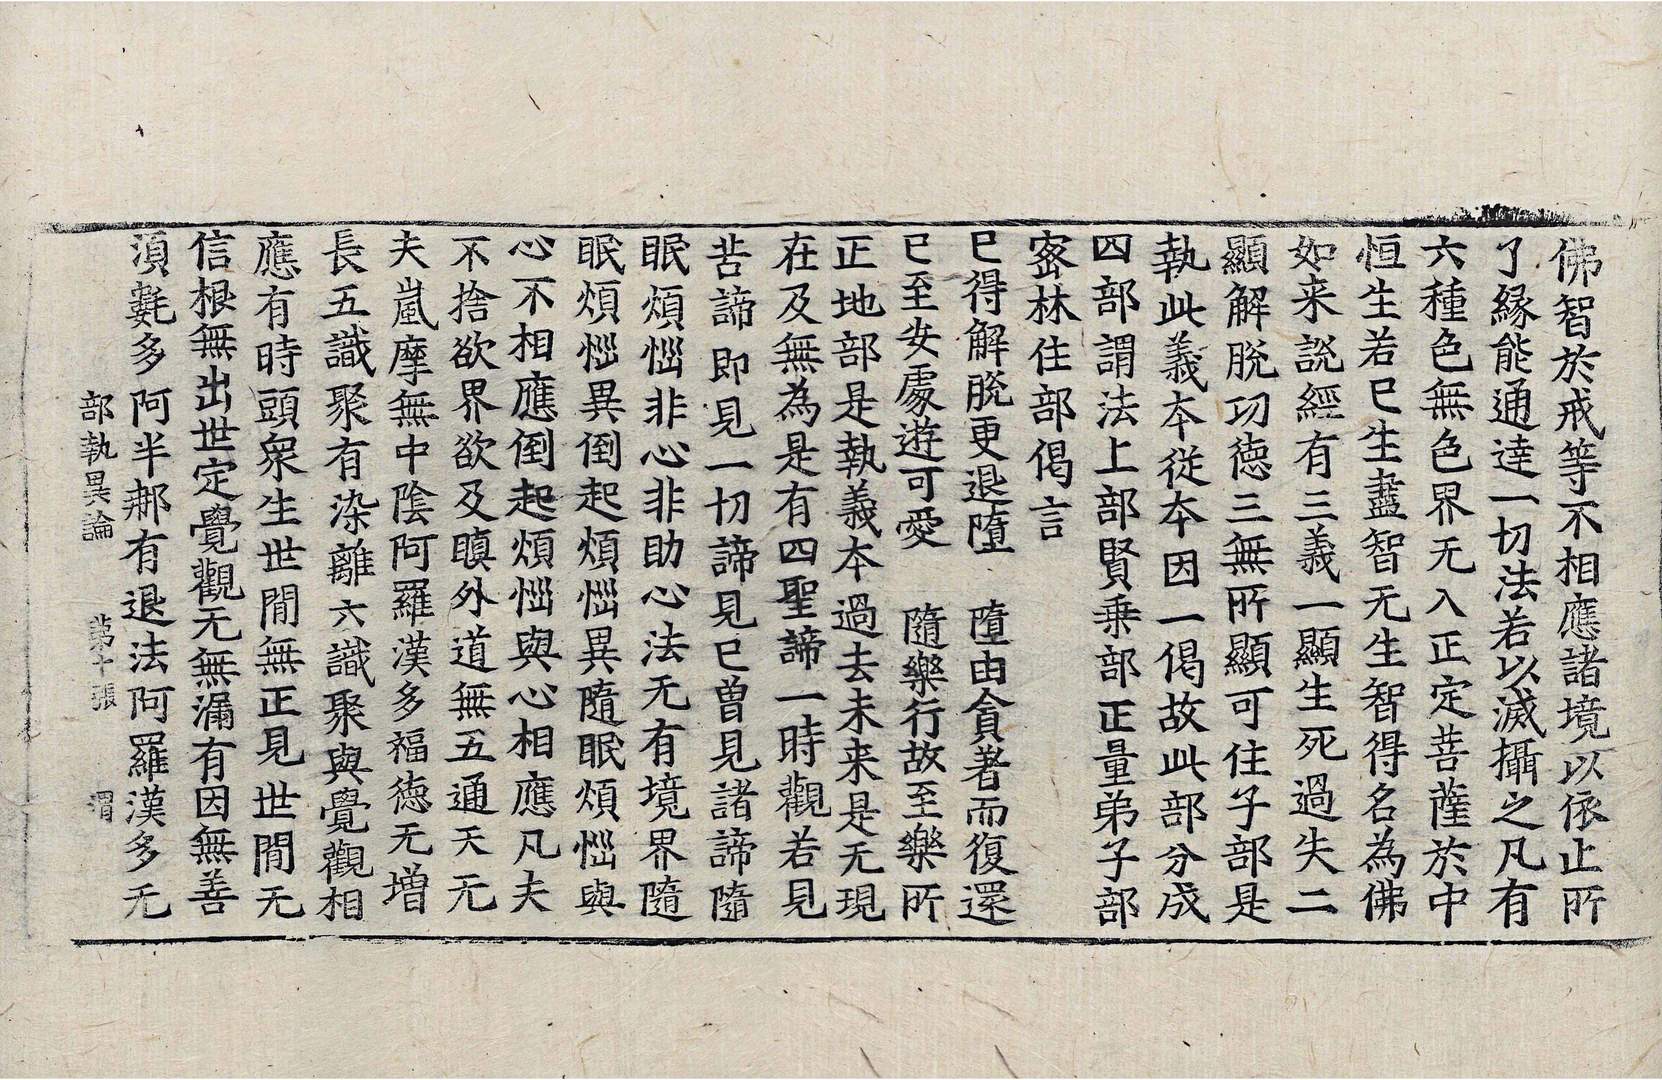 佛智於戒等不相應諸境以依止所
了縁能通達一切法若以滅攝之凡有
六種色無色界无入正定菩薩於中
恒生若已生盡智无生智得名為佛
如来説經有三義一顯生死過失二
顯解脫功徳三無所顯可住子部是
執此義本從本因一偈故此部分成
四部謂法上部賢乗部正量弟子部
宻林住部偈言
已得解脫更退墮　墮由貪著而復還
已至安處遊可愛　隨樂行故至樂所
正地部是執義本過去未来是无現
在及無為是有四聖諦一時觀若見
苦諦即見一切諦見已曽見諸諦隨
眠煩惱非心非助心法无有境界隨
眠煩惱異倒起煩惱異隨眠煩惱與
心不相應倒起煩惱與心相應凡夫
不捨欲界欲及瞋外道無五通天无
夫嵐摩無中陰阿羅漢多福徳无増
長五識聚有染離六識聚與覺觀相
應有時頭衆生世間無正見世間无
信根無出世定覺觀无無漏有因無善
湏㲲多阿半郍有退法阿羅漢多无
部執異論　第十張　渭